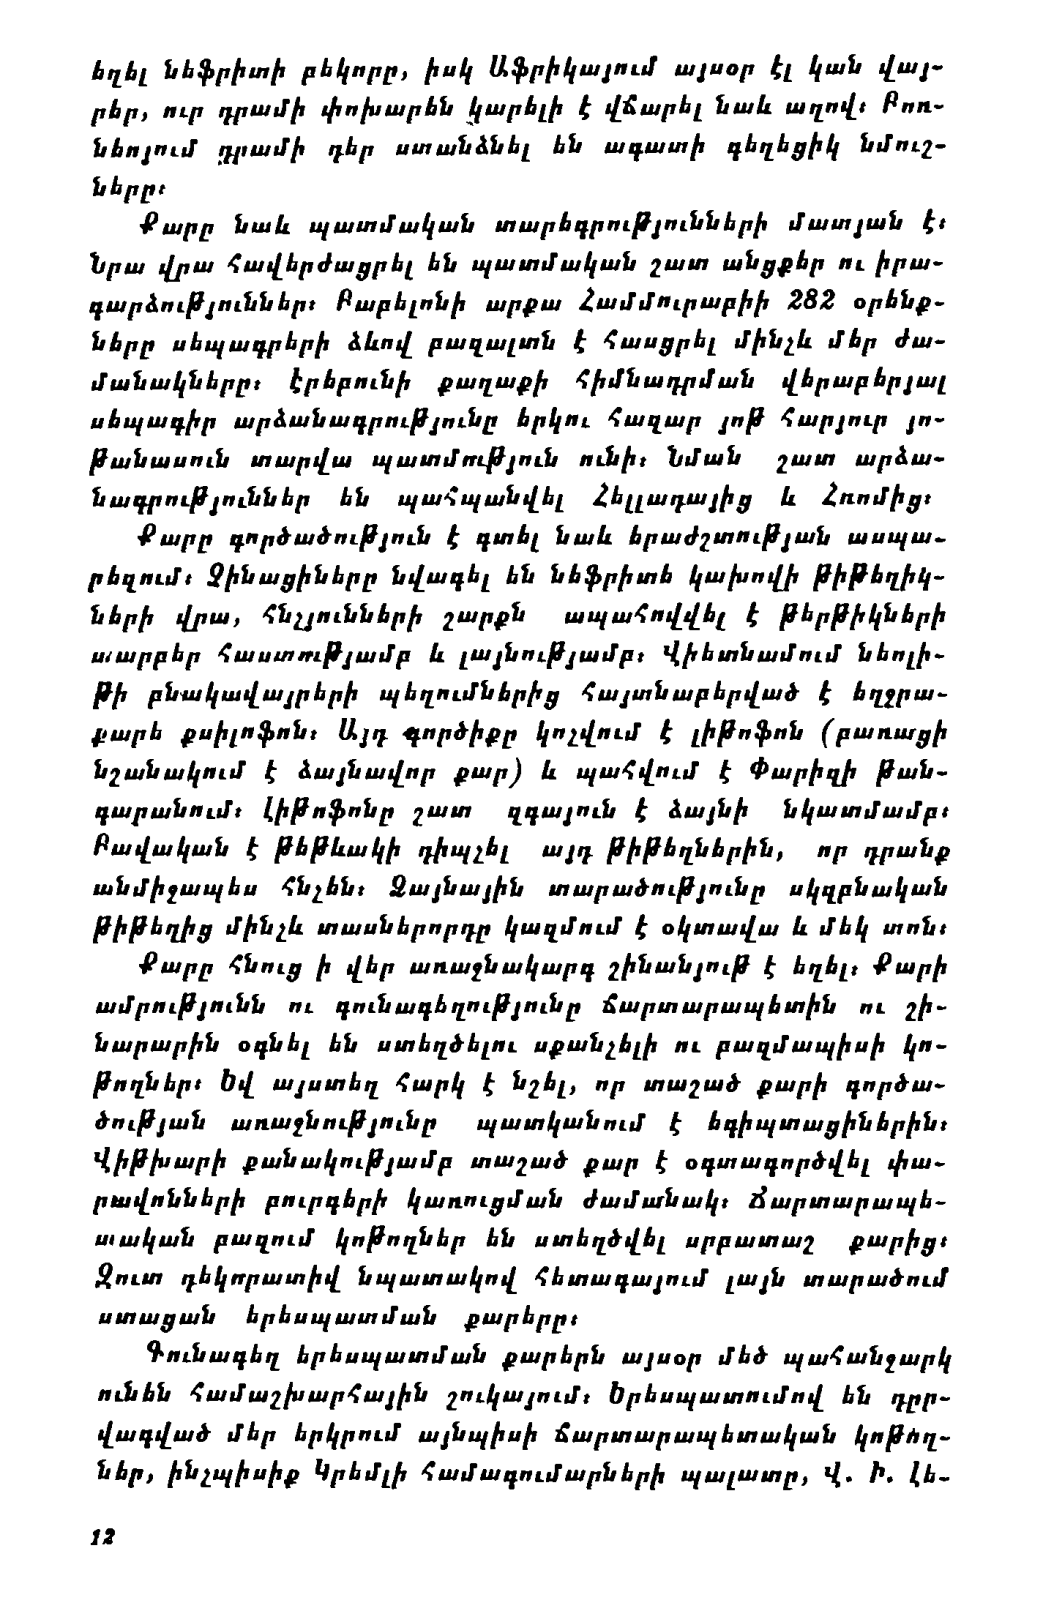 եղել նեֆրիտի բեկորը, իսկ Աֆրիկայում այսօր էլ կան վայ-
րեր, ուր դրամի փոխարեն կարելի է վճարել նաև աղով։ Բոռ-
նեոյում դրամի դեր ստանձնել են ագատի գեղեցիկ նմուշ-
ները։
Քարը նաև պատմական տարեգրությունների մատյան է։
Նրա վրա հավերժացրել են պատմական շատ անցքեր ու իրա-
գարձություններ։ Բաբելոնի արքա Համմուրաբիի 282 օրենք-
ները սեպագրերի ձևով բազալտն է հասցրել մինչև մեր ժա-
մանակները։ Էրեբունի քաղաքի հիմնադրման վերաբերյալ
սեպագիր արձանագրությունը երկու հազար յոթ հարյուր յո-
թանասուն տարվա պատմություն ունի։ Նման շատ արձա-
նագրություններ են պահպանվել Հելլադայից և Հռոմից։
Քարը գործածություն է գտել նաև երաժշտության ասպա-
րեզում։ Չինացիները նվագել են նեֆրիտե կախովի թիթեղիկ-
ների վրա, հնչյունների շարքն ապահովվել է թերթիկների
տարբեր հաստությամբ և լայնությամբ։ Վիետնամում նեոլի-
թի բնակավայրերի պեղումներից հայտնաբերված է եղջրա-
քարե քսիլոֆոն։ Այդ գործիքը կոչվում է լիթոֆոն (բառացի
նշանակում է ձայնավոր քար) և պահվում է Փարիզի թան-
գարանում։ Լիթոֆոնը շատ զգայուն է ձայնի նկատմամբ։
Բավական է թեթևակի դիպչել այդ թիթեղներին, որ դրանք
անմիջապես հնչեն։ Ձայնային տարածությունը սկզբնական
թիթեղից մինչև տասներորդը կազմում է օկտավա և մեկ տոն։
Քարը հնուց ի վեր առաջնակարգ շինանյութ է եղել։ Քարի
ամրությունն ու գունագեղությունը ճարտարապետին ու շի-
նարարին օգնել են ստեղծելու սքանչելի ու բազմապիսի կո-
թողներ։ Եվ այստեղ հարկ է նշել, որ տաշած քարի գործա-
ծության առաջնությունը պատկանում է եգիպտացիներին։
Վիթխարի քանակությամբ տաշած քար է օգտագործվել փա-
րավոնների բուրգերի կառուցման ժամանակ։ Ճարտարապե-
տական բազում կոթողներ են ստեղծվել սրբատաշ քարից։
Զուտ դեկորատիվ նպատակով հետագայում լայն տարածում
ստացան երեսպատման քարերը։
Գունագեղ երեսպատման քարերն այսօր մեծ պահանջարկ
ունեն համաշխարհային շուկայում։ Երեսպատումով են դըր-
վագված մեր երկրում այնպիսի ճարտարապետական կոթող-
ներ, ինչպիսիք Կրեմլի համագումարների պալատը, Վ. Ի. Լե-
12